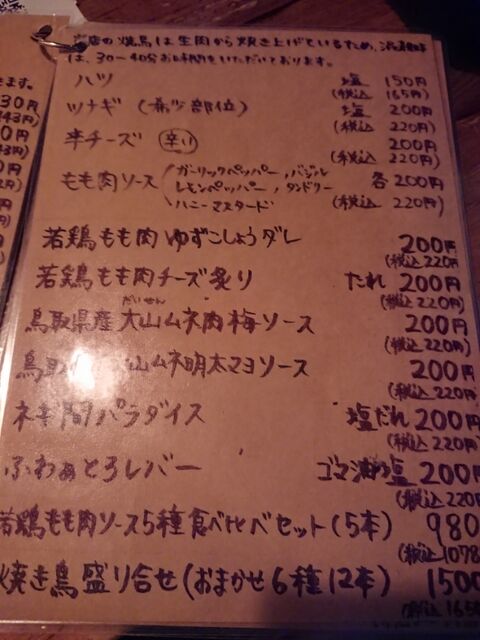 当店の焼鳥は生肉から焼き上げているため、混雑時
は、30〜40分お時間をいただいております。
ハツ 塩 150円
(税込 165円)
ツナギ (希少部位) 塩 200円
(税込 220円)
辛チーズ 辛い 200円
(税込 220円)
もも肉ソース ガーリックペッパー, バジル
レモンペッパー, タンドリー 各200円
ハニーマスタード (税込 220円)
若鶏もも肉ゆずこしょうダレ 200円
(税込 220円)
若鶏もも肉チーズ炙り たれ 200円
(税込 220円)
だいせん
鳥取県産大山ムネ肉梅ソース 200円
(税込 220円)
鳥取 山ムネ明太マヨソース 200円
(税込 220円)
ネギ間パラダイス 塩だれ 200円
(税込 220円)
ふわぁとろレバー ゴマ油塩 200円
(税込 220
若鶏もも肉ソース5種食べ比べセット(5本) 980
(税込 1078
焼き鳥盛り合せ(おまかせ6種12本) 1500
(税込 165